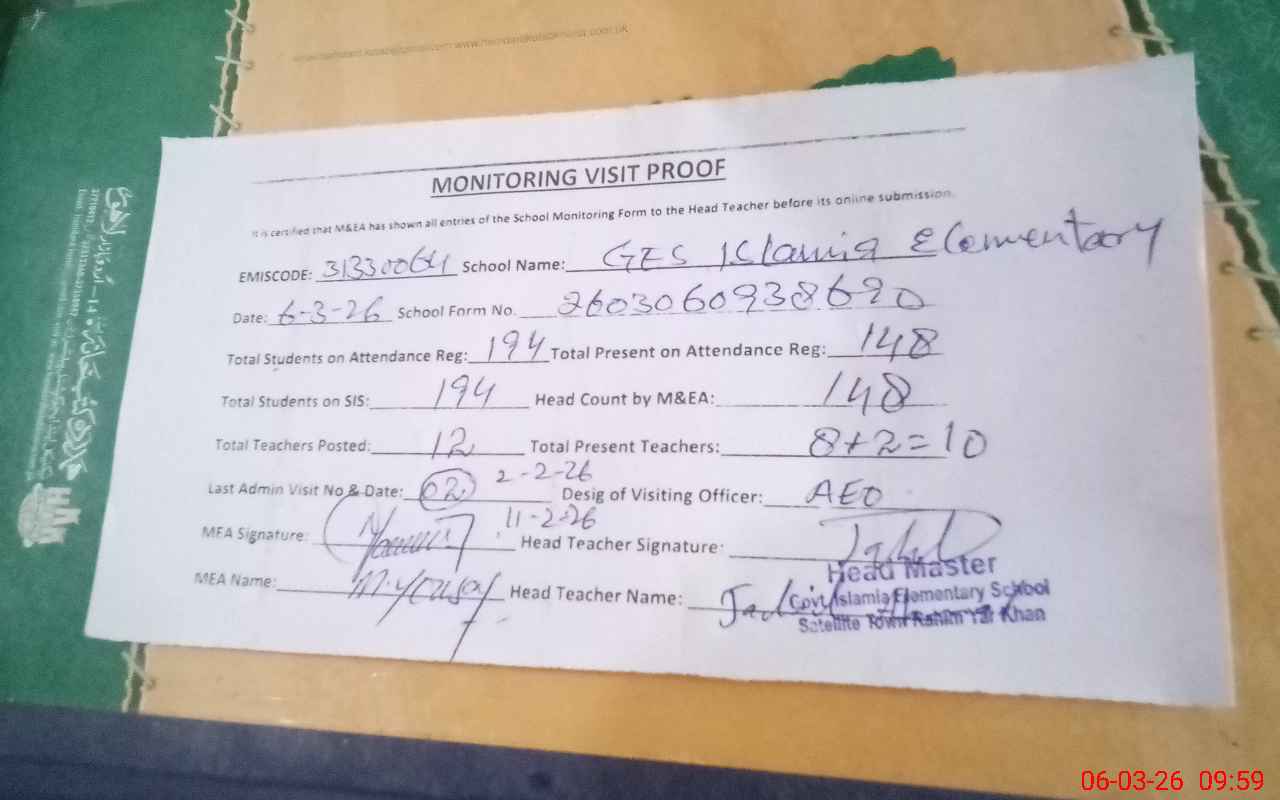 www.hamdardkutabkhana.com.pk
MONITORING VISIT PROOF
It is certified that M&EA has shown all entries of the School Monitoring Form to the Head Teacher before its online submission.
EMISCODE: 31330064 School Name: GES Islamia Elementary
Date: 6-3-26 School Form No. 2603060938690
Total Students on Attendance Reg: 194 Total Present on Attendance Reg: 148
Total Students on SIS: 194 Head Count by M&EA: 148
Total Teachers Posted: 12 Total Present Teachers: 8+2=10
Last Admin Visit No & Date: 02 2-2-26 Desig of Visiting Officer: AEO
11-2-26
MEA Signature: Head Teacher Signature:
MEA Name: M. Yousaf Head Teacher Name:
Head Master
Govt Islamia Elementary School
Satellite Town Rahim Yar Khan
06-03-26 09:59